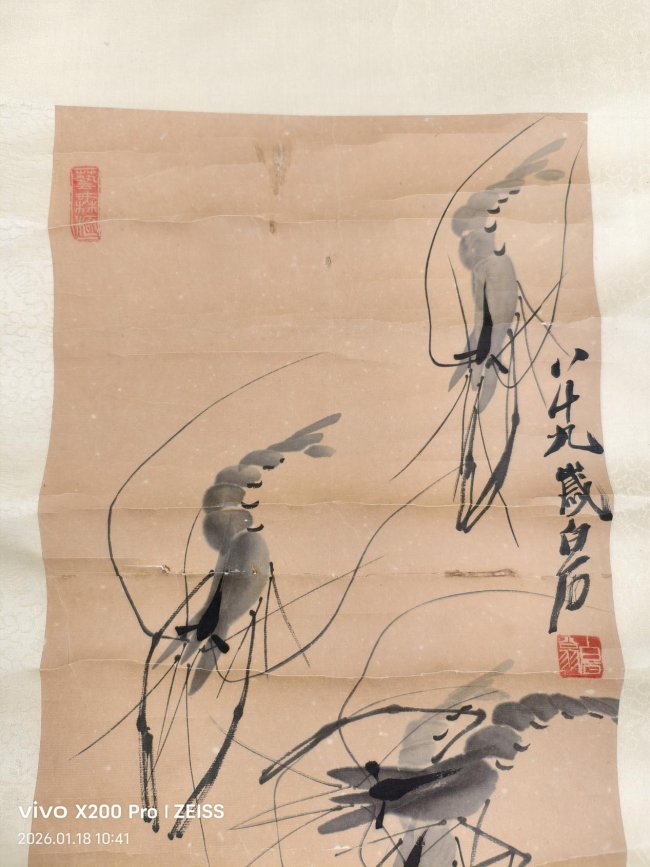 八十九歲白石
白石翁
vivo X200 Pro | ZEISS
2026.01.18 10:41